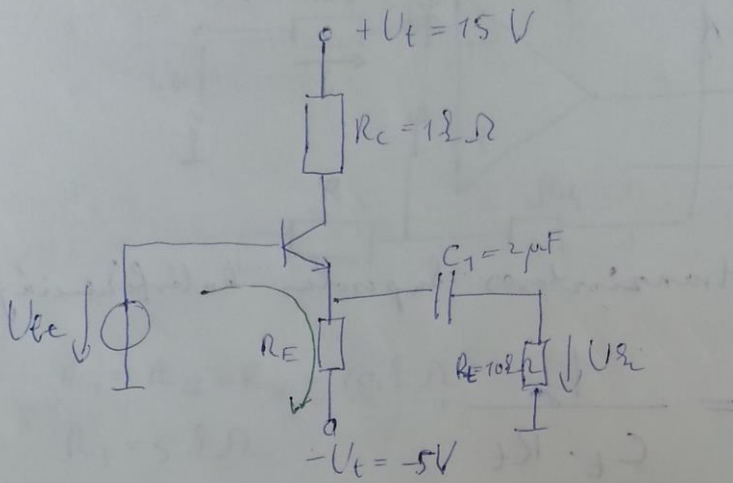 +Ut = 15 V
Rc = 1k Ω
C1 = 2 μF
Ube
RE
Rt=10k Ω
Uki
-Ut = -5V